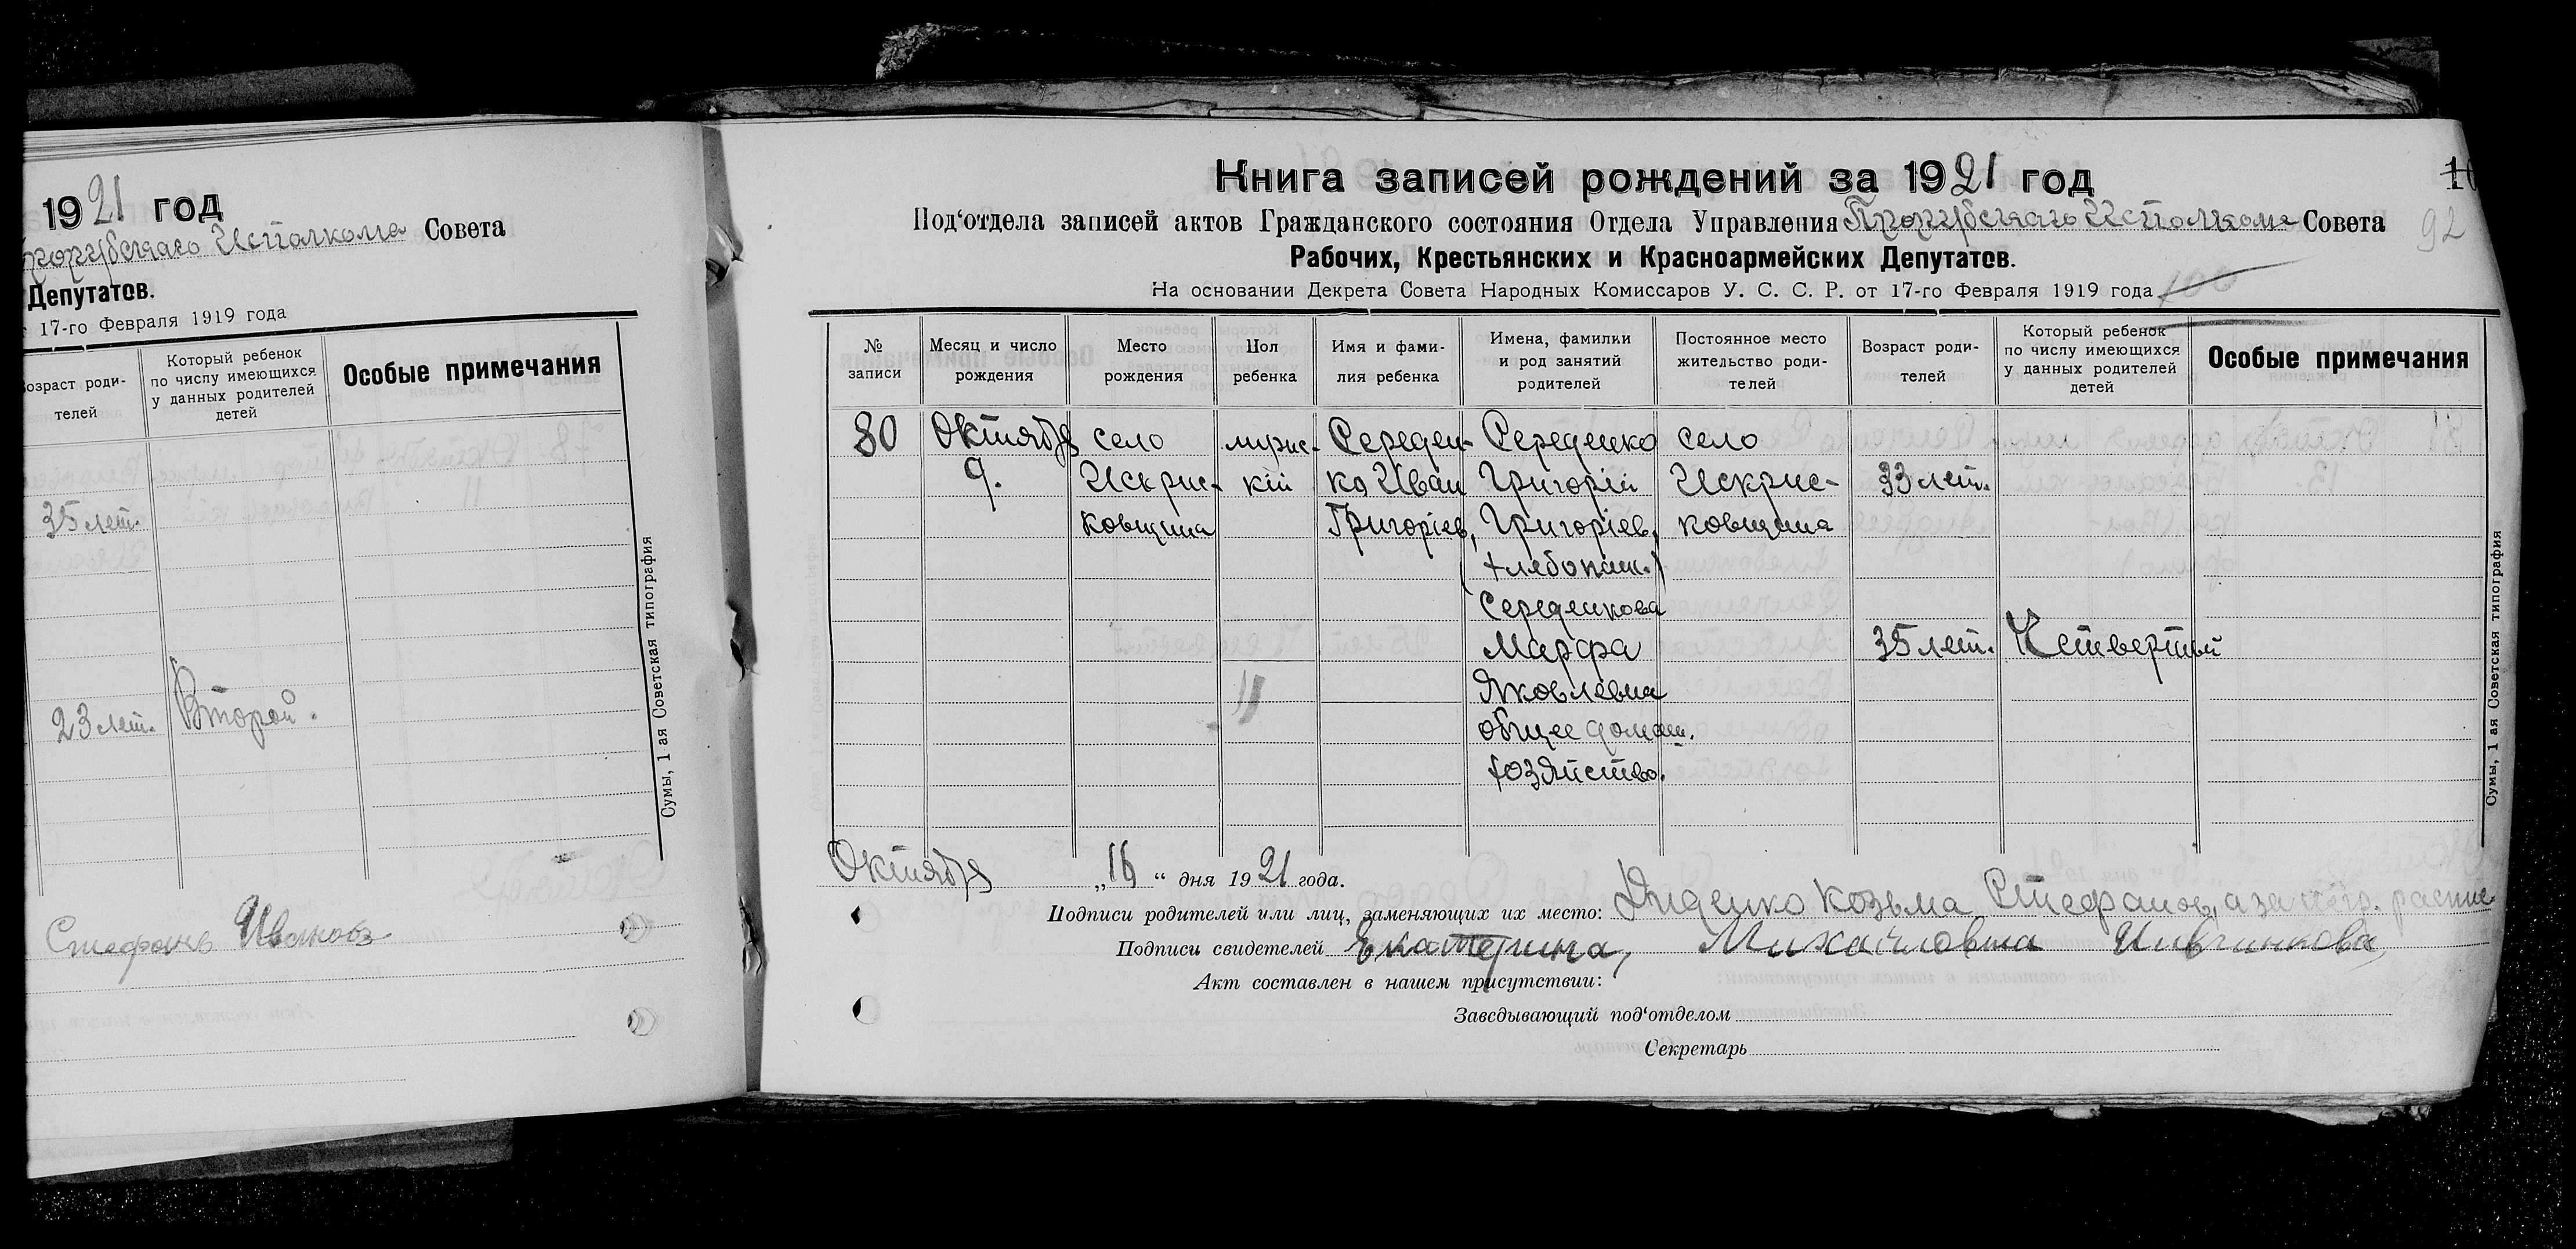 1921 год
Совета
Депутатов.
17-го Февраля 1919 года
Возраст роди-
телей
Который ребенок
по числу имеющихся
у данных родителей
детей
Особые примечания
35 лет.
23 лет.
Второй.
Сумы, 1 ая Советская типография
Стефанъ Ивановъ
Книга записей рождений за 1921 год
Под‘отдела записей актов Гражданского состояния Отдела Управления Исполкома Совета
92
Рабочих, Крестьянских и Красноармейских Депутатов.
На основании Декрета Совета Народных Комиссаров У. С. С. Р. от 17-го Февраля 1919 года
100
№
записи
Месяц и число
рождения
Место
рождения
Пол
ребенка
Имя и фами-
лия ребенка
Имена, фамилки
и род занятий
родителей
Постоянное место
жительство роди-
телей
Возраст роди-
телей
Который ребенок
по числу имеющихся
у данных родителей
детей
Особые примечания
80
Октября
9.
село
Искрис-
ковщина
мужс-
кій
Середен-
ко Иван
Григоріев,
Середенко
Григорій
Григоріев,
(хлебопаш.)
Середенкова
Марфа
Яковлевна
общее домаш.
хозяйство.
село
Искрис-
ковщина
33 лет.
35 лет.
Четвертый
Сумы, 1 ая Советская типография
Октября „16“ дня 1921 года.
Подписи родителей или лиц, заменяющих их место: Диденко Козьма Стефанов, а за
Подписи свидетелей Екатерина, Михайловна
Акт составлен в нашем присутствии:
Заведывающий под‘отделом
Секретарь